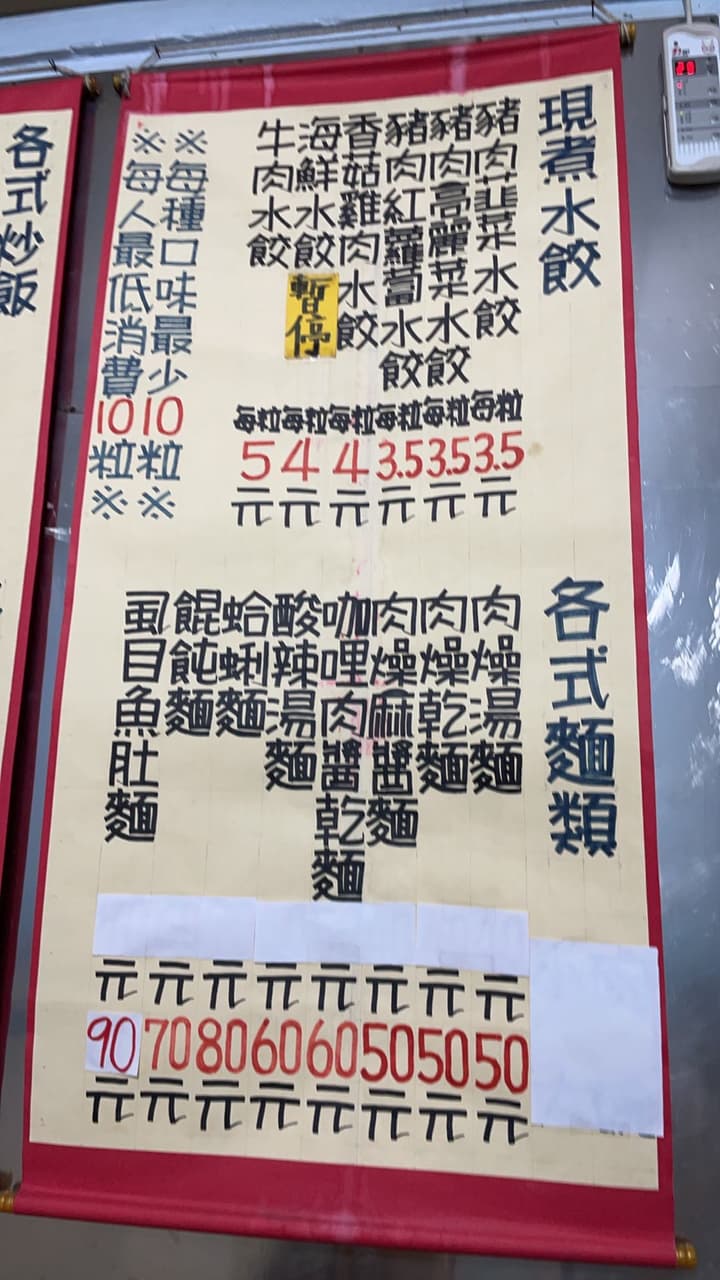 現煮水餃
豬肉韭菜水餃 每粒3.5元
豬肉高麗菜水餃 每粒3.5元
豬肉紅蘿蔔水餃 每粒3.5元
香菇雞肉水餃 每粒4元
海鮮水餃 暫停 每粒4元
牛肉水餃 每粒5元
※每種口味最少10粒※
※每人最低消費10粒※
各式麵類
肉燥湯麵 元50元
肉燥乾麵 元50元
肉燥麻醬麵 元50元
咖哩肉醬乾麵 元60元
酸辣湯麵 元60元
蛤蜊麵 元80元
餛飩麵 元70元
虱目魚肚麵 元90元
各式炒飯
20